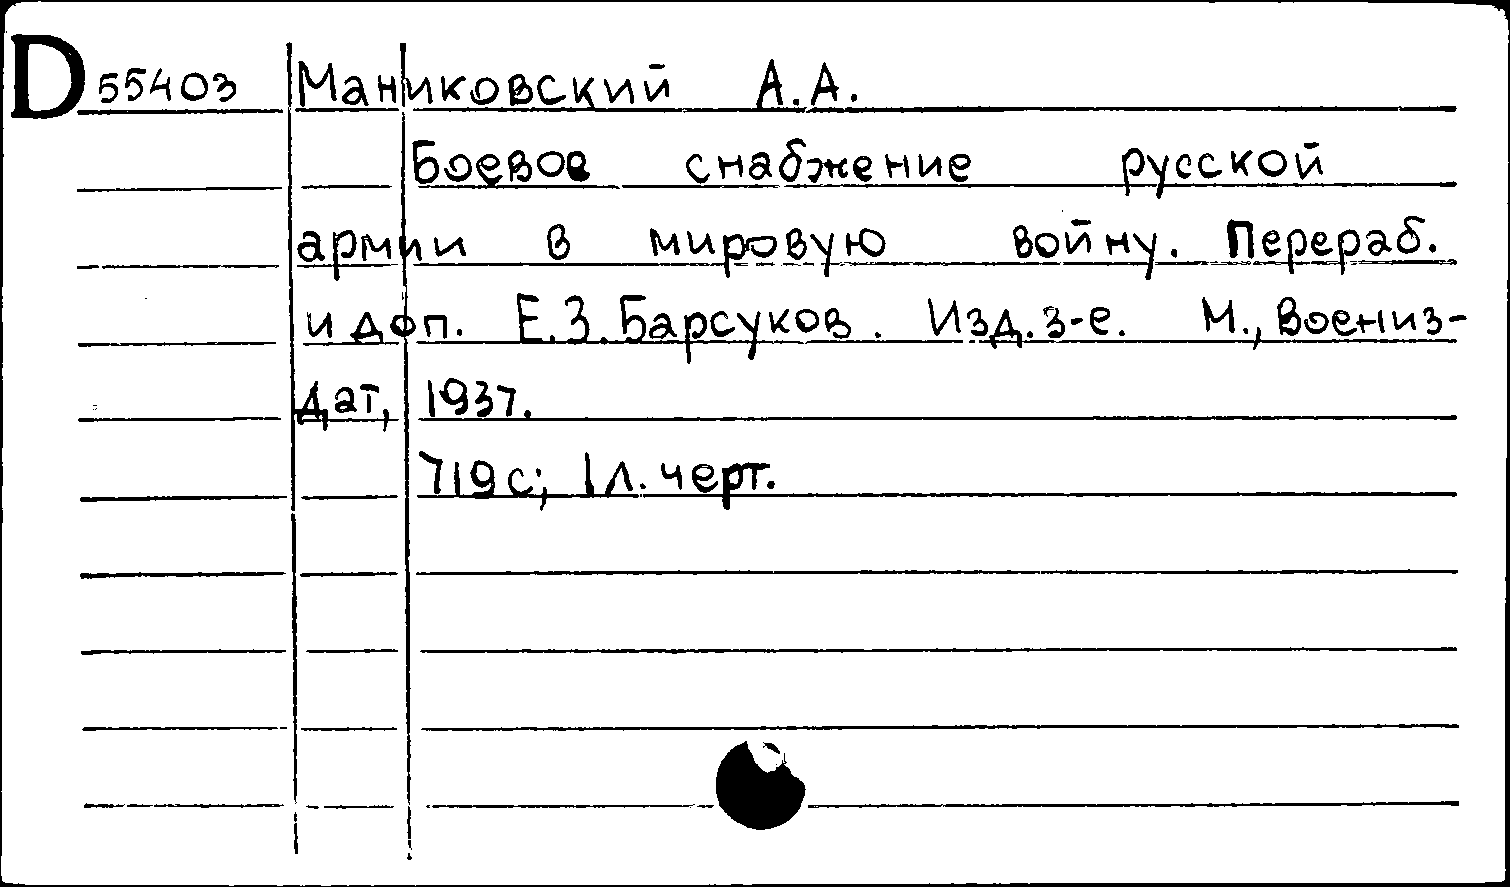 D 55403 Маниковский А.А.
Боевое снабжение русской
армии в мировую войну. Перераб.
и доп. Е.З. Барсуков. Изд. 3-е. М., Воениз-
дат, 1937.
719 с; 1 л. черт.